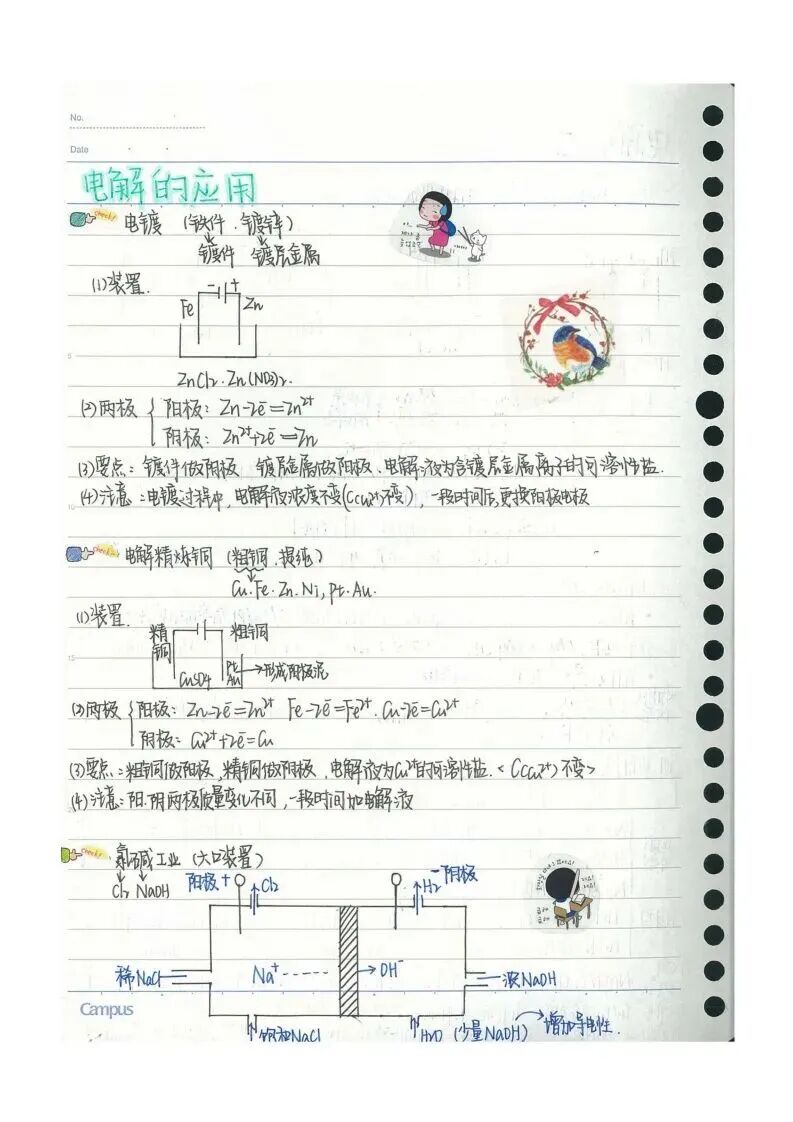 No.
Date
电解的应用
check! 电镀 (铁件、镀锌)
镀件 镀层金属
(1)装置.
- +
Fe Zn
ZnCl2. Zn(NO3)2.
(2)两极 { 阳极: Zn-2e⁻=Zn²⁺
阴极: Zn²⁺+2e⁻=Zn
(3)要点: 镀件做阴极 镀层金属做阳极、电解液为含镀层金属离子的可溶性盐.
(4)注意: 电镀过程中, 电解液浓度不变(Ccu²⁺不变), 一段时间后,更换阳极电极
check! 电解精炼铜 (粗铜、提纯)
Cu.Fe.Zn.Ni, Pt.Au.
(1)装置.
精铜 粗铜
CuSO4 Pt Au →形成阳极泥
(2)两极 { 阳极: Zn-2e⁻=Zn²⁺ Fe-2e⁻=Fe²⁺. Cu-2e⁻=Cu²⁺
阴极: Cu²⁺+2e⁻=Cu
(3)要点: 粗铜做阳极, 精铜做阴极, 电解液为Cu²⁺的可溶性盐. <C(cu²⁺)不变>
(4)注意: 阳.阴两极质量变化不同, 一段时间加电解液
check! 氯碱工业 (六口装置)
Cl2 NaOH 阳极+ Cl2 H2 -阴极
稀NaCl Na⁺ ----- → OH⁻ 浓NaOH
Campus
饱和NaCl H2O (少量NaOH) 增加导电性.